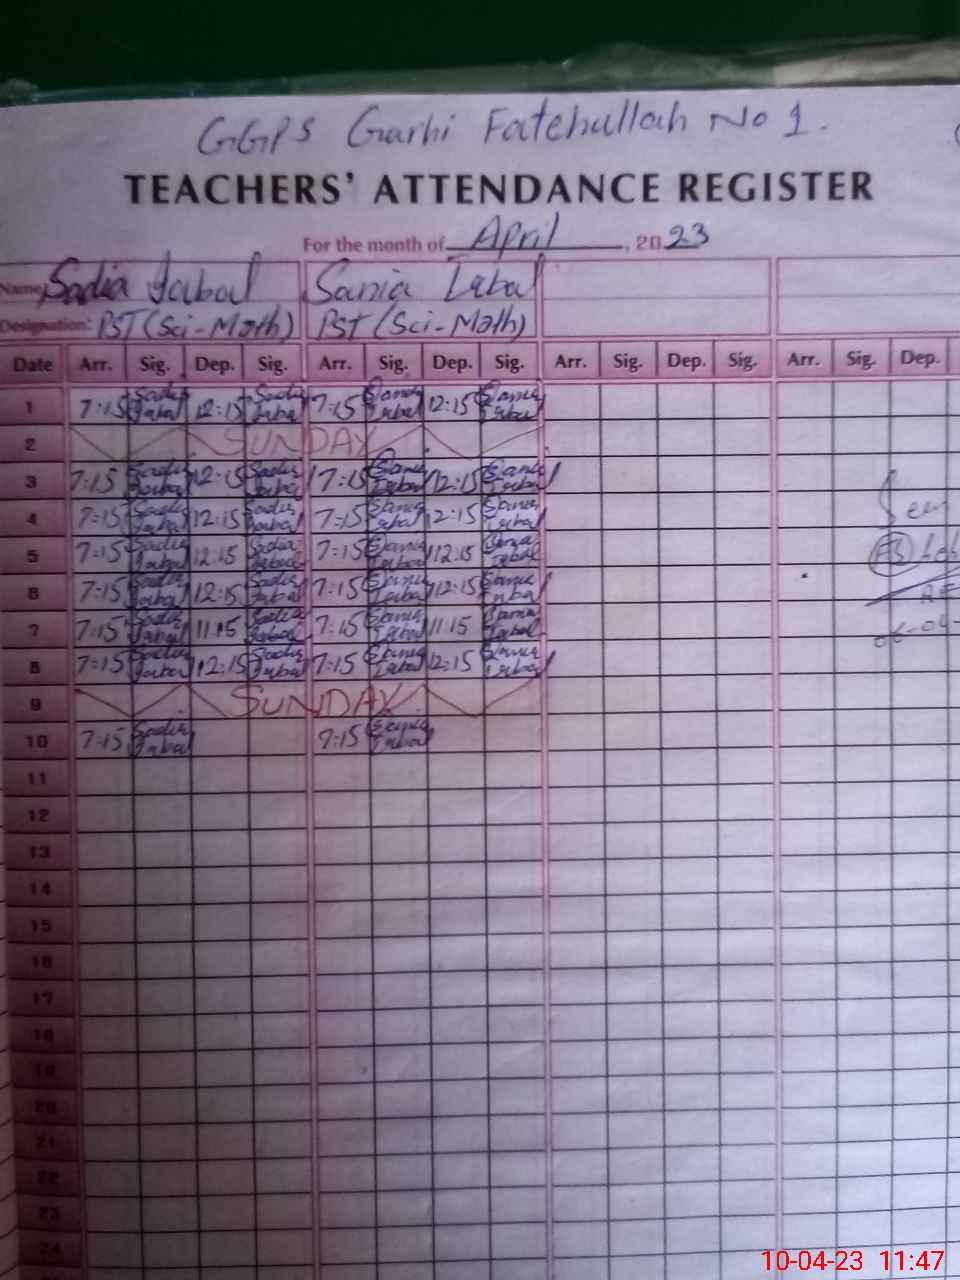 GGPS Garhi Fatehullah No 1.
TEACHERS' ATTENDANCE REGISTER
For the month of April, 2023
Name: Sadia Iqbal Sania Iqbal
Designation: PST (Sci-Math) PST (Sci-Math)
Date Arr. Sig. Dep. Sig. Arr. Sig. Dep. Sig. Arr. Sig. Dep. Sig. Arr. Sig. Dep.
1 7:15 Sadia Iqbal 12:15 Sadia Iqbal 7:15 Sania Iqbal 12:15 Sania Iqbal
2 SUNDAY
3 7:15 Sadia Iqbal 12:15 Sadia Iqbal 7:15 Sania Iqbal 12:15 Sania Iqbal
4 7:15 Sadia Iqbal 12:15 Sadia Iqbal 7:15 Sania Iqbal 12:15 Sania Iqbal
5 7:15 Sadia Iqbal 12:15 Sadia Iqbal 7:15 Sania Iqbal 12:15 Sania Iqbal
6 7:15 Sadia Iqbal 12:15 Sadia Iqbal 7:15 Sania Iqbal 12:15 Sania Iqbal
7 7:15 Sadia Iqbal 11:15 Sadia Iqbal 7:15 Sania Iqbal 11:15 Sania Iqbal
8 7:15 Sadia Iqbal 12:15 Sadia Iqbal 7:15 Sania Iqbal 12:15 Sania Iqbal
9 SUNDAY
10 7:15 Sadia Iqbal 7:15 Sania Iqbal
11
12
13
14
15
16
17
18
19
20
21
22
23
24
10-04-23 11:47